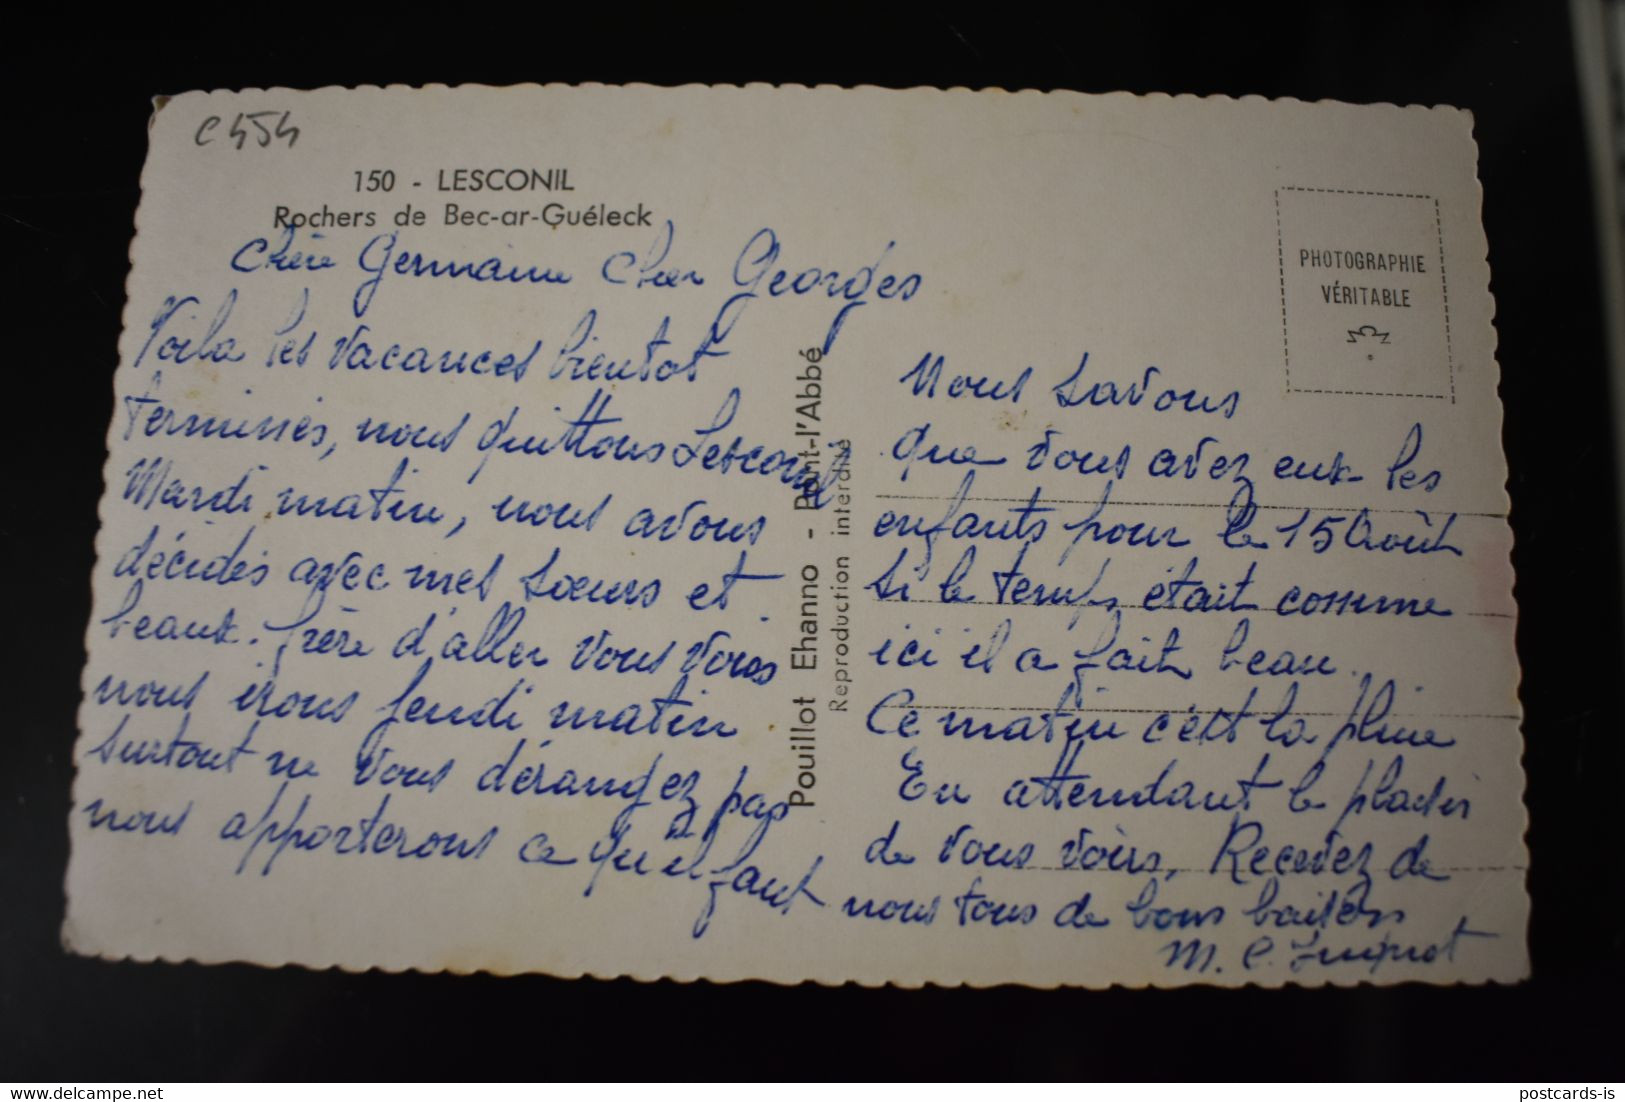 C454
150 - LESCONIL
Rochers de Bec-ar-Guéleck
Chère Germaine cher Georges
Voila les vacances bientot
terminés, nous quittons Lesconil
Mardi matin, nous avons
décidés avec mes sœurs et
beaux-frère d'aller vous voirs
nous irons jeudi matin
surtout ne vous dérangez pas
nous apporterons ce qu'il faut
Pouillot Ehanno - Pont-l'Abbé
Reproduction interdite
PHOTOGRAPHIE
VÉRITABLE
Nous savons
que vous avez eux les
enfants pour le 15 Août
si le temps était comme
ici il a fait beau.
Ce matin c'est la pluie
En attendant le plaisir
de vous voirs, Recevez de
nous tous de bons baisers
M. C.
delcampe.net
postcards-is